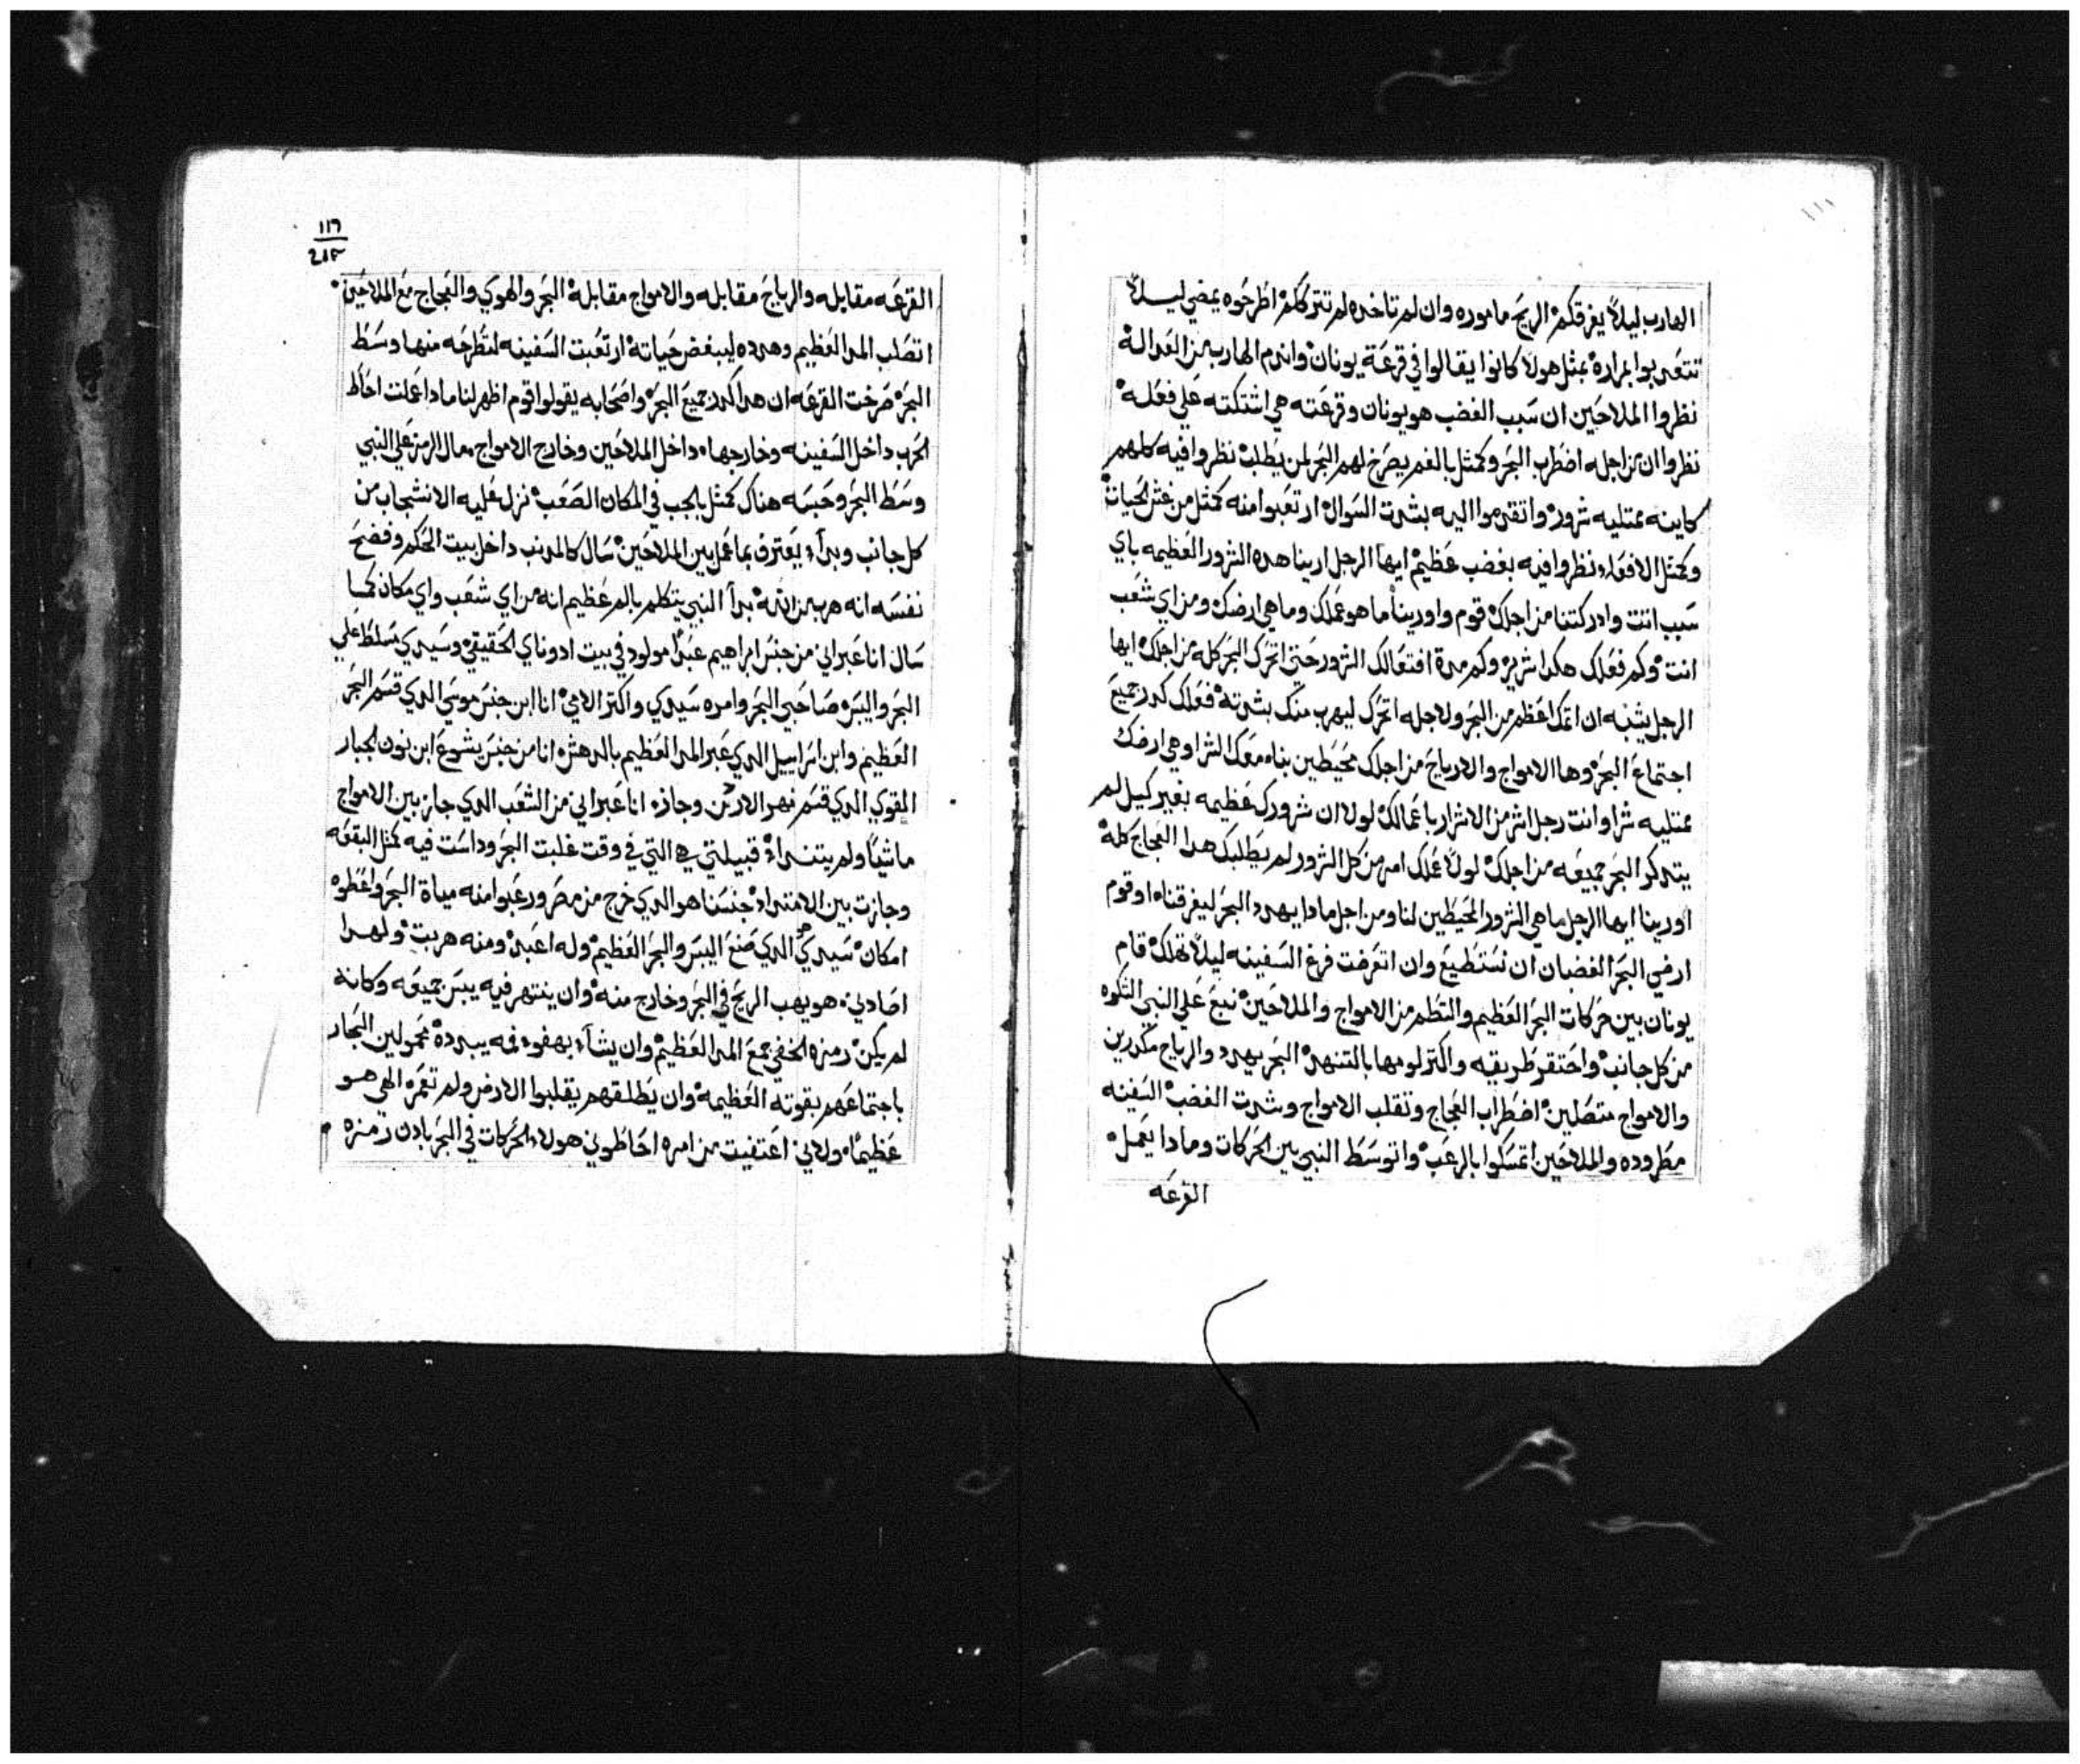 الهارب ليلاً يغرقكم الريح ماموره وان لم تاخده لم تتركلم اطرحوه يمضي ليلاً
تتعدبوا بمراره بمثل هولا كانوا يقالوا في قرعة يونان وانهم الهارب من العدالة
نظروا الملاحين ان سبب الغضب هو يونان وقرعته هي اشتكته علي فعله
نظروا ان من اجله اضطرب البحر وكمثل بالفم يصرخ لهم البحر لمن يطلب نظروا فيه كلهم
كاينه ممتليه شرور واتقدموا اليه بشدت السوال ارتعبوا منه كمثل من غش الحيات
وكمثل الافعاء ونظروا فيه بغضب عظيم ايها الرجل ارينا هده الشرور العظيمه باي
سبب انت وادركتنا من اجلك قوم واورينا ما هو عملك وما هي ارضك ومن اي شعب
انت وكم فعلك هكدا شرير وكم مدة افتعالك الشرور حتي اتحرك البحر كله من اجلك ايها
الرجل يشبه ان اتمك اعظم من البحر ولاجله اتحرك ليهرب منك بشدته فعلك كدر جميع
اجتماع البحر وها الامواج والارياح من اجلك محيطين بنا معك الشر او هي ارضك
ممتليه شر او انت رجل اشر من الاشرار باعمالك لولا ان شرورك عظيمه بغير كيل لم
يتدكر البحر جميعه من اجلك لولا عملك امر من كل الشرور لم يطلبك هدا العجاج كله
اورينا ايها الرجل ما هي الشرور المحيطين لنا ومن اجل مادا يهدد البحر ليغرقنا او قوم
ارضي البحر الغضبان ان نستطيع وان اتعرضت فرغ السفينه ليلاً تهلك قام
يونان بين حركات البحر العظيم والتطم من الامواج والملاحين نبع علي النبي التكوه
من كل جانب واحتقر طريقه واكتر لومها بالتنهد البحر يهدد والرياح متكدرين
والامواج متصلين اضطراب العجاج وتقلب الامواج وشدت الغضب السفينه
مطروده والملاحين اتمسكوا بالرعب واتوسط النبي بين الحركات ومادا يعمل
القرعه
١١٦
القرعه مقابله والرياح مقابله والامواج مقابلة البحر والهوي والعجاج مع الملاحين
اتصلب المدا العظيم وهدده ليبغض حياته ارتعبت السفينه لتطرحه منها وسط
البحر صرخت القرعه ان هدا كدر جميع البحر واصحابه يقولوا قوم اظهر لنا مادا عملت احاط
الحرب داخل السفينه وخارجها داخل الملاحين وخارج الامواج مال الرمز علي النبي
وسط البحر وحبسه هناك كمثل بالجب في المكان الصعب نزل عليه الانشجاب من
كل جانب وبداء يعترف بما عمل بين الملاحين سال كالمدنب داخل بيت الحكم وفضح
نفسه انه هرب من الله بدا النبي يتكلم بالم عظيم انه من اي شعب واي مكان كما
سال انا عبراني من جنس ابراهيم عبداً مولود في بيت ادوناي الحقيقي وسيدي مسلط علي
البحر واليبس صاحبي البحر وامره سيدي واكتر الامي انا ابن جنس موسي الدي قسم البحر
العظيم وابن اسراييل الدي عبر المدا العظيم بالدهش انا من جنس يشوع ابن نون الجبار
القوي الدي قسم نهر الاردن وجازه انا عبراني من الشعب الدي جاز بين الامواج
ماشياً ولم يتنداء قبيلتي هي التي في وقت غلبت البحر وداست فيه كمثل البقعه
وجازت بين الامتداد جنسنا هو الدي خرج من مصر ورعبوا منه مياة البحر واعطوه
امكان سيدي هو الدي صنع اليبس والبحر العظيم وله اعبد ومنه هربت ولهدا
اصادني هو يهب الريح في البحر وخارج منه وان ينتهر فيه ييبس جميعه وكانه
لم يكن رمزه الخفي جمع المدا العظيم وان يشاء بهفوة فمه يبدده محمولين البحار
باجتماعهم بقوته العظيمه وان يطلقهم يقلبوا الارض ولم تعمره الهي هو
عظيماً ولاني اعتفيت من امره احاطوني هولاء الحركات في البحر بادن رمزه